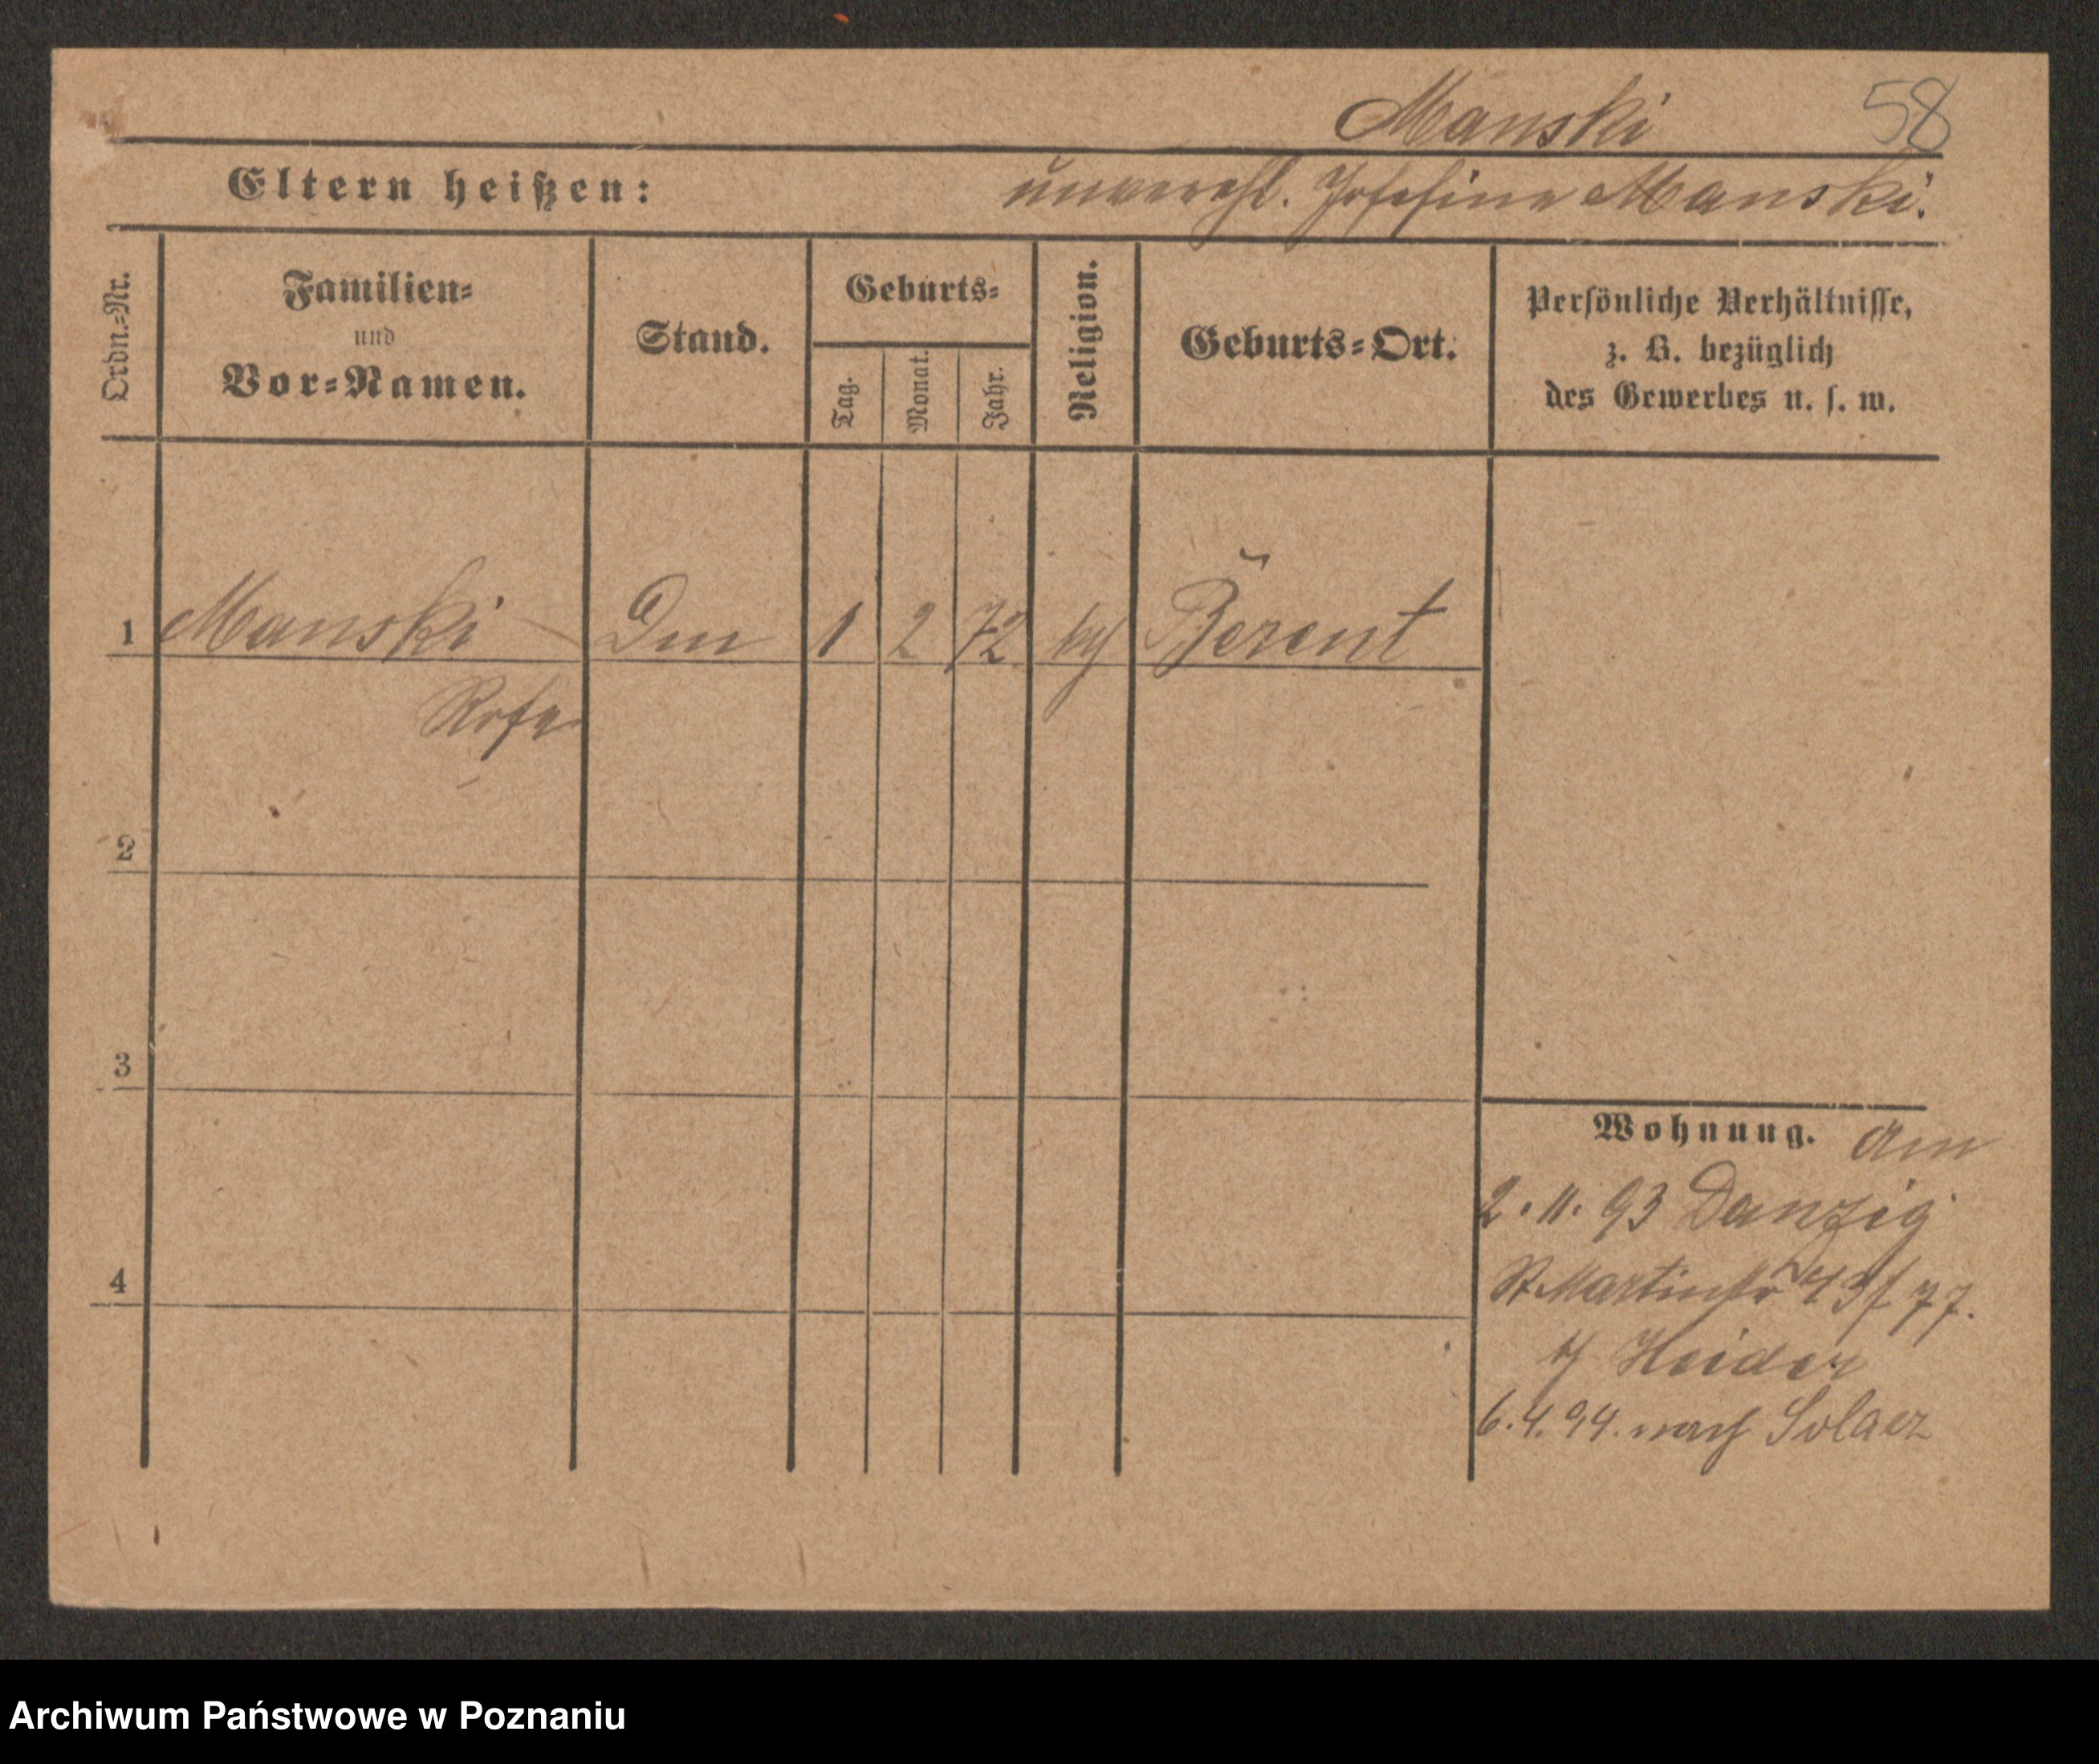 Manski 58
Eltern heißen: unverehl. Josefine Manski.
Ordn.=Nr. Familien= und Vor=Namen. Stand. Geburts= Tag. Monat. Jahr. Religion. Geburts=Ort. Persönliche Verhältnisse, z. B. bezüglich des Gewerbes u. s. w.
1 Manski Dm 1 2 72 kg Berent
Rosa
2
3
4
Wohnung. am
2.11.93 Danzig
St Martinstr
Heider
6.4.94. nach Solacz
Archiwum Państwowe w Poznaniu